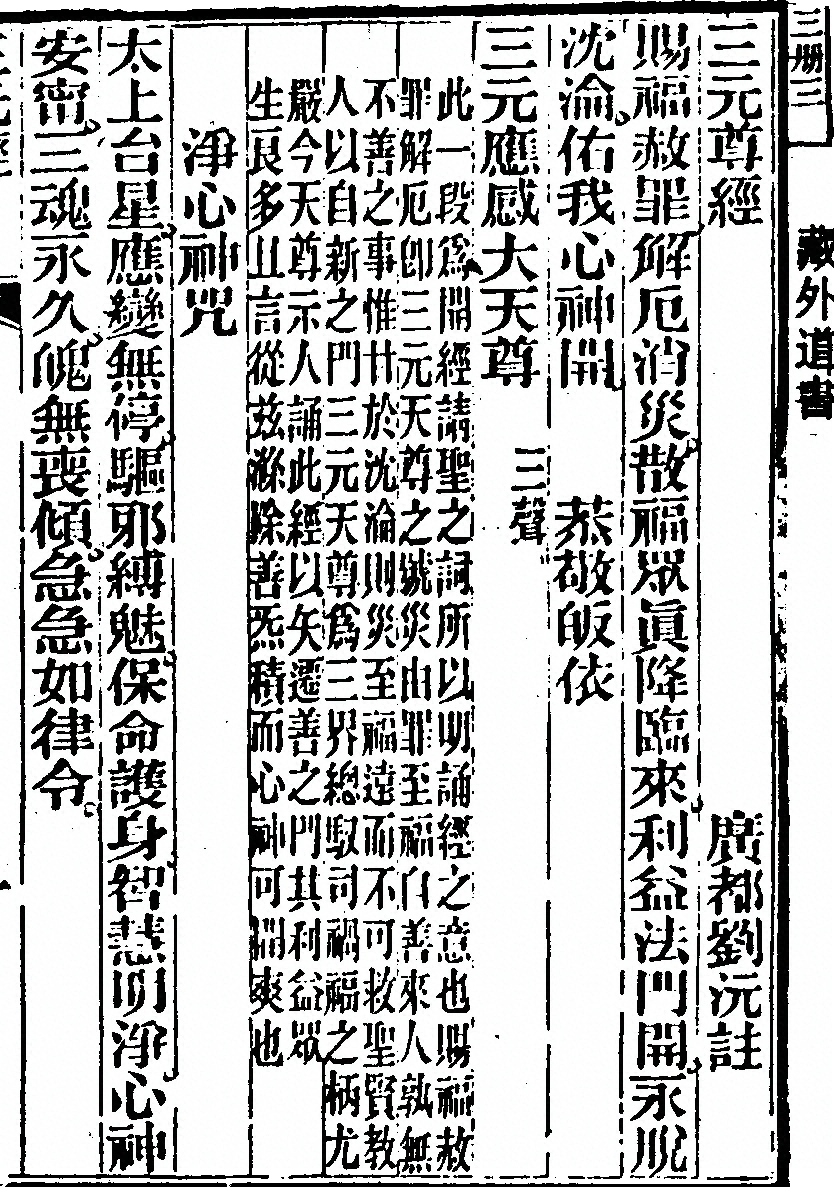 三册三
藏外道書
三元尊經 廣都劉沅註
賜福赦罪解厄消災散福眾真降臨來利益法門開永脫
沈淪佑我心神開 恭敬皈依
三元應感大天尊 三聲
此一段為開經請聖之詞所以明誦經之意也賜福赦
罪解厄即三元天尊之號災由罪至福自善來人孰無
不善之事惟甘於沈淪則災至福遠而不可救聖賢教
人以自新之門三元天尊為三界總馭司禍福之柄尤
嚴今天尊示人誦此經以矢遷善之門其利益眾
生良多且言從茲滌除善炁積而心神可開爽也
淨心神咒
太上台星應變無停驅邪縛魅保命護身智慧明淨心神
安甯三魂永久魄無喪傾急急如律令